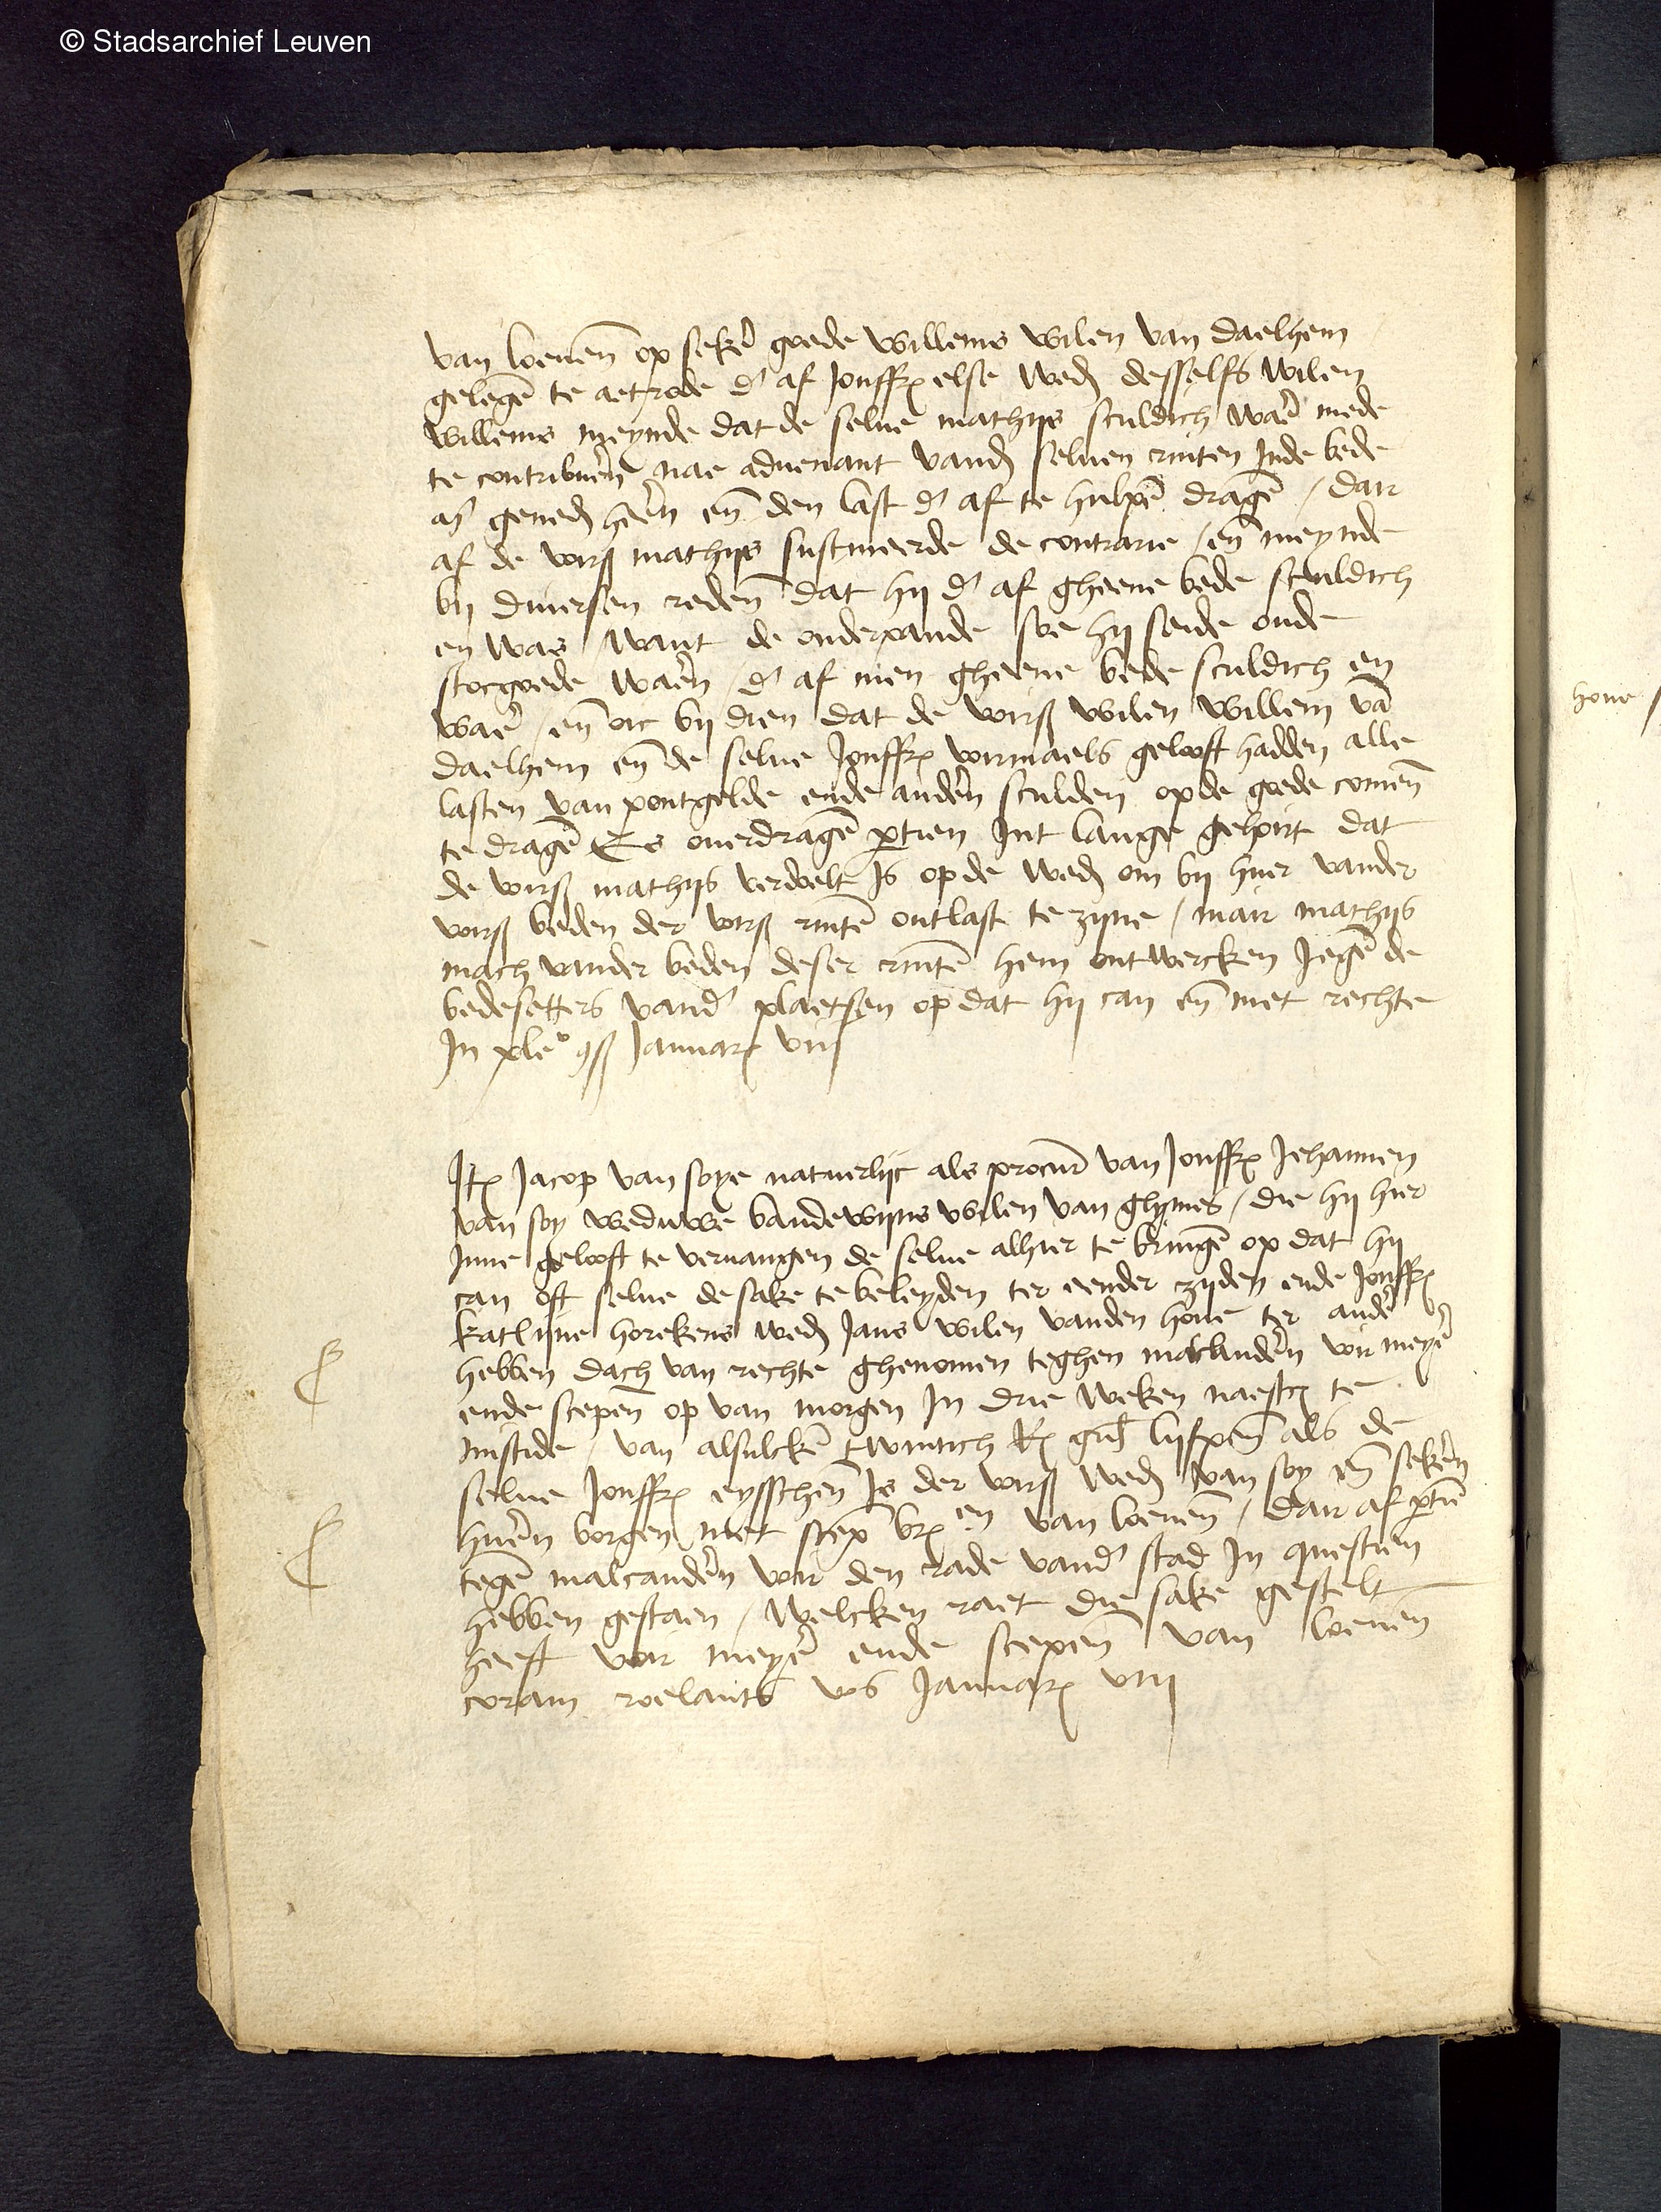 © Stadsarchief Leuven
van loeuen̄ op seker̉ goede willems wilen van daelhem
gelegē te aetrode d' af Jouffr̄ else wed̄ desselfs wilen
willems meynde dat de selue mathijs sculdich waer̉ mede
te contribuer̉n nae aduenant vand̄ seluen rinten Inde bede
ōs gened̄ heer̉n en̄ den last d' af te hulpē dragē / dair
af de vors̄ mathijs sustineerde de contrarie / en̄ meynde
bij diuersen reden̄ dat hij d' af gheene bede sculdich
en was / want de onderpande soe hij seide oude
stocgoede waer̉n / d' af men gheene bede sculdich en
waer̉ / en̄ oic bij dien dat de vors̄ wilen willem vā
daelhem en̄ de selue Jouffr̄ vormaels geloeft hadden alle
lasten van pontgelde ende ander̉n sculden op de goede comen̄
te dragē Es ouerdragē ptien Int lange gehoirt dat
de vors̄ mathijs verdoelt Is op de wed̄ om bij huer vander
vors̄ beden der vors̄ rintē ontlast te zijne / mair mathijs
mach vander beden deser rintē hem ontwercken Jegē de
bedesetters vand' plaetsen op dat hij can en̄ met rechte
In pleō 9s̄ Januar̄ viij
Itē Jacop van soye natuerlijc als procur̄ van Jouffr̄ Jehannen
van soy weduwe baudewijns wilen van ghijmes / die hij hier
Inne geloeft te veruangen de selue alhier te bringē op dat hij
can oft selue de sake te beleyden ter eender zijden ende Jouffr̄
katlijne horekens wed̄ Jans wilen vanden houe ter ander̉
hebben dach van rechte ghenomen teghen malcander̉n voir meyer̉
ende scepen̄ op van morgen In drie weken naestc̄ te
mistide / van alsulckē twintich R̄ gul̄ lijfpen̄ als de
selue Jouffr̄ eysschen̄ Is der vors̄ wed̄ van soy en̄ seker̉n
huer̉n borgen met scep̄ br̄en van loeuen̄ / dair af ptiē
tegē malcander̉n voir den rade vand' stad In questien
hebben gestaen / welcken raet die sake gestelt
heeft voir meyer̉ ende scepen̄ van loeuen̄
coram roelants vˢ Januar̄ viij
houe